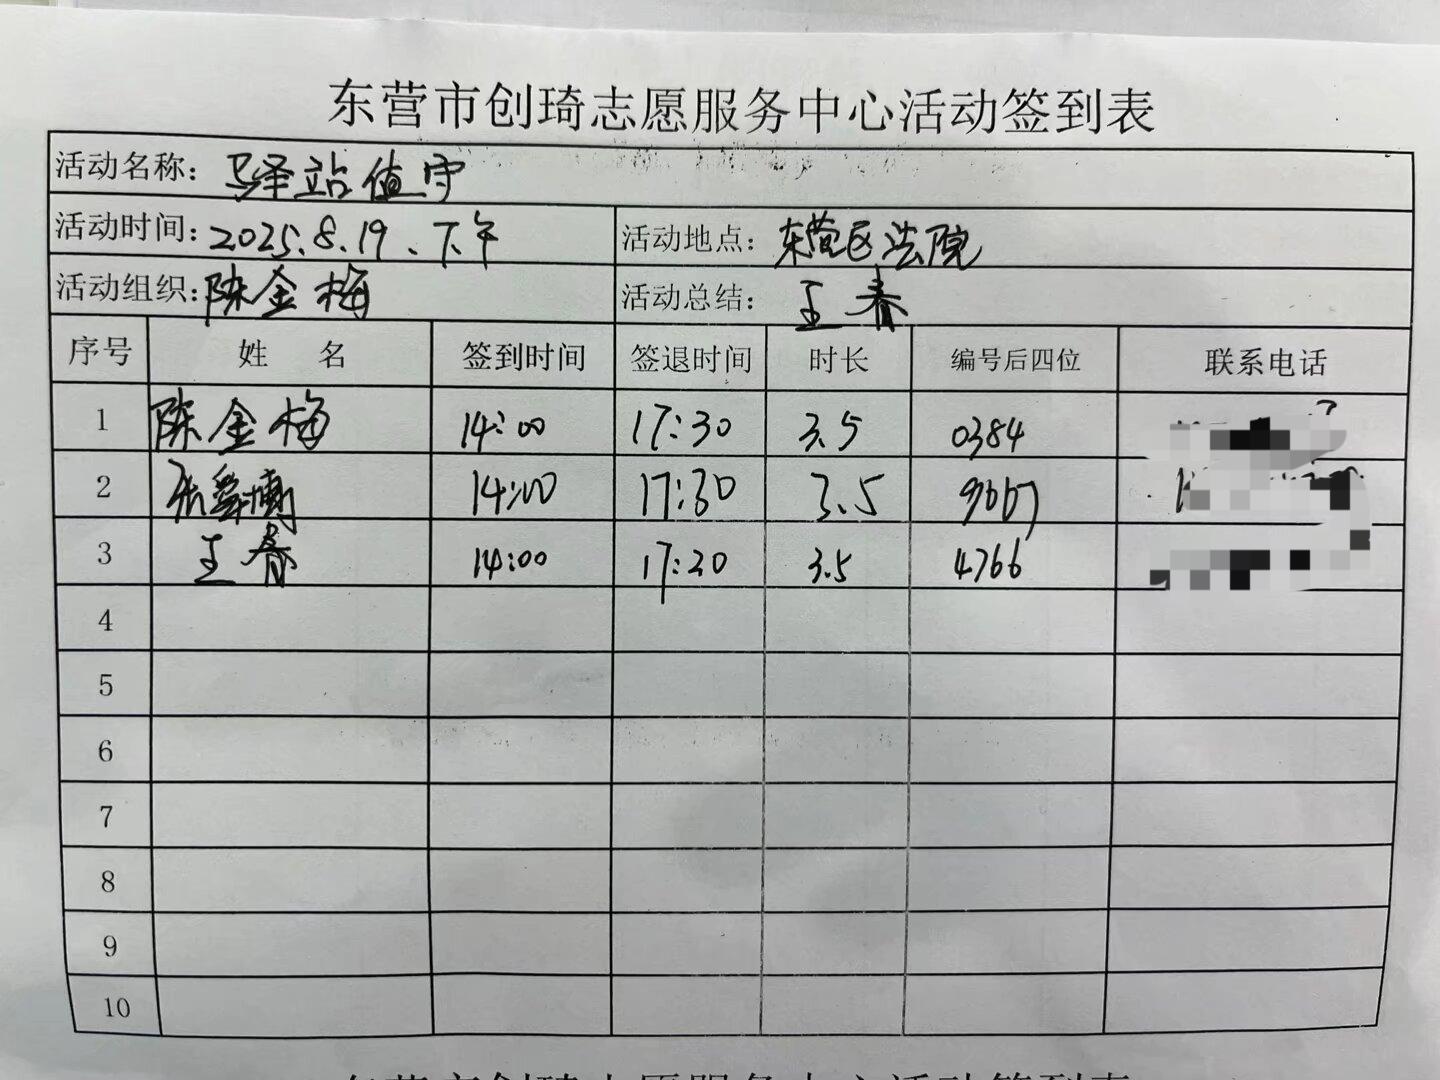 东营市创琦志愿服务中心活动签到表
活动名称：驿站值守
活动时间：2025.8.19.下午 活动地点：东营区法院
活动组织：陈金梅 活动总结：王春
序号 姓 名 签到时间 签退时间 时长 编号后四位 联系电话
1 陈金梅 14:00 17:30 3.5 0384
2 张 14:00 17:30 3.5 9667
3 王春 14:00 17:30 3.5 4766
4
5
6
7
8
9
10
东营市创琦志愿服务中心活动签到表